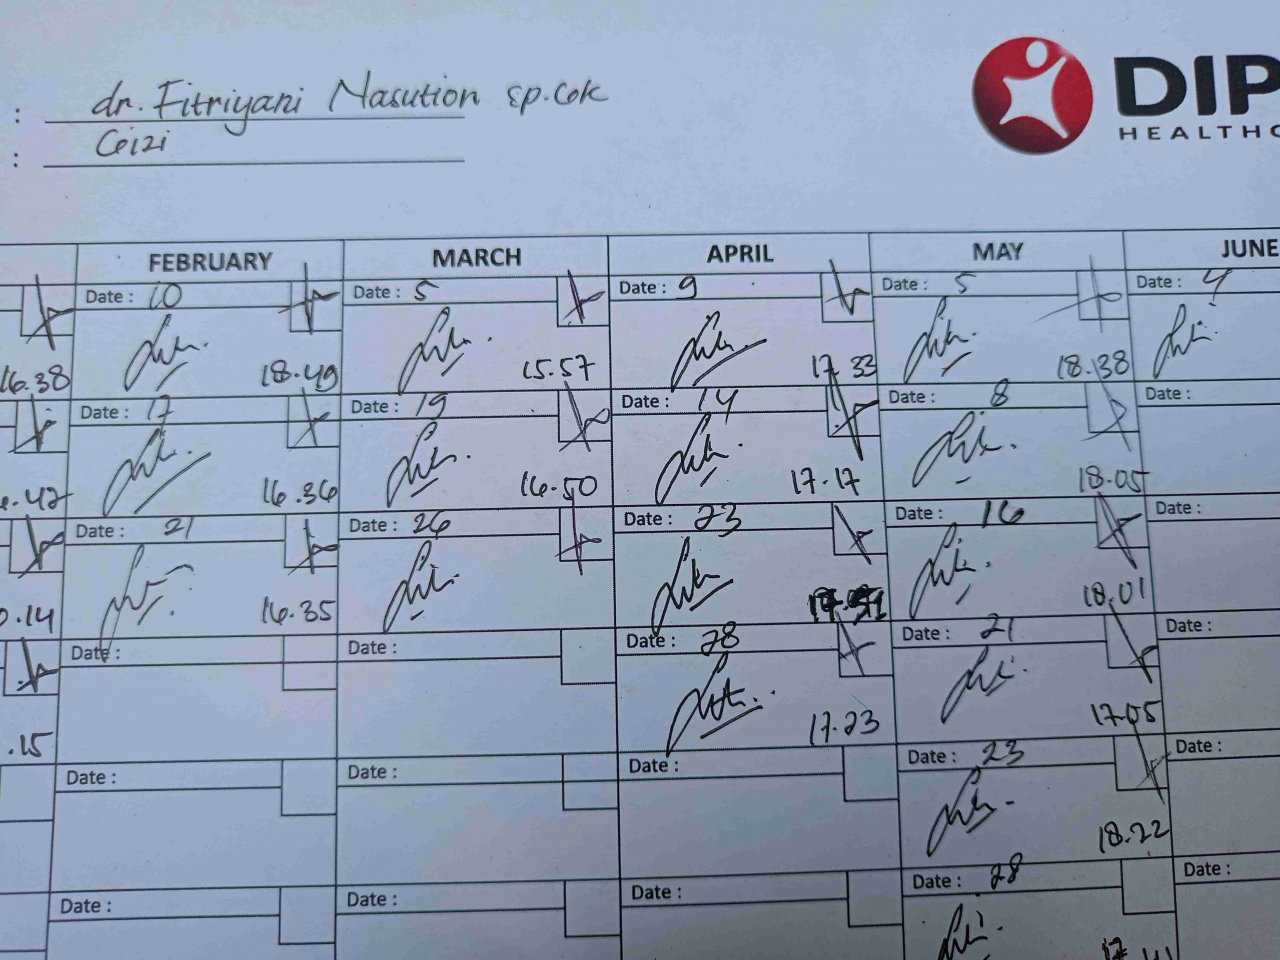 : dr. Fitriyani Nasution sp.GK
: Gizi
DIP
HEALTHC
FEBRUARY MARCH APRIL MAY JUNE
Date : 10 Date : 5 Date : 9 Date : 5 Date : 4
16.38 18.49 15.57 17.33 18.138
Date : 17 Date : 19 Date : 14 Date : 8 Date :
16.36 16.50 17.17 18.05
Date : 21 Date : 26 Date : 23 Date : 16 Date :
.14 16.35 18.01
Date : Date : Date : 28 Date : 21 Date :
.15 17.23 17.05
Date : Date : Date : Date : 23 Date :
18.22
Date : Date : Date : Date : 28 Date :